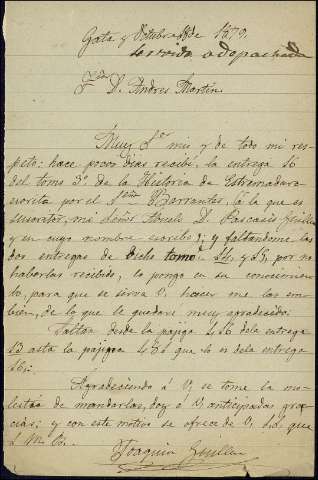 Gata y Octubre 18 de 1879.
Sr. D. Andres Martin.
Muy Sor mio y de todo mi res-
peto: hace pocos dias recibi, la entrega 16
del tomo 3º de la Historia de Estremadura
escrita por el Señor Barrantes, á la que es
suscrator, mi Señor Abuelo D. Pascasio Guillen
y en cuyo nombre escribo; y faltandome las
dos entregas de dicho tomo 14, y 15, por no
haberlas recibido, lo pongo en su conocimien-
to, para que se sirva V. hacer me las em-
bien, de lo que le quedaré muy agradecido.
Faltan desde la pajiga 416 dela entrega
13 asta la pajigna 481 que lo es dela entrega
16.
Agradeciendo á V, se tome la mo-
lestia de mandarlas, doy á V, anticipadas gra-
cias; y con este motivo se ofrece de V, s.s. que
B. M. B.
Joaquin Guillen